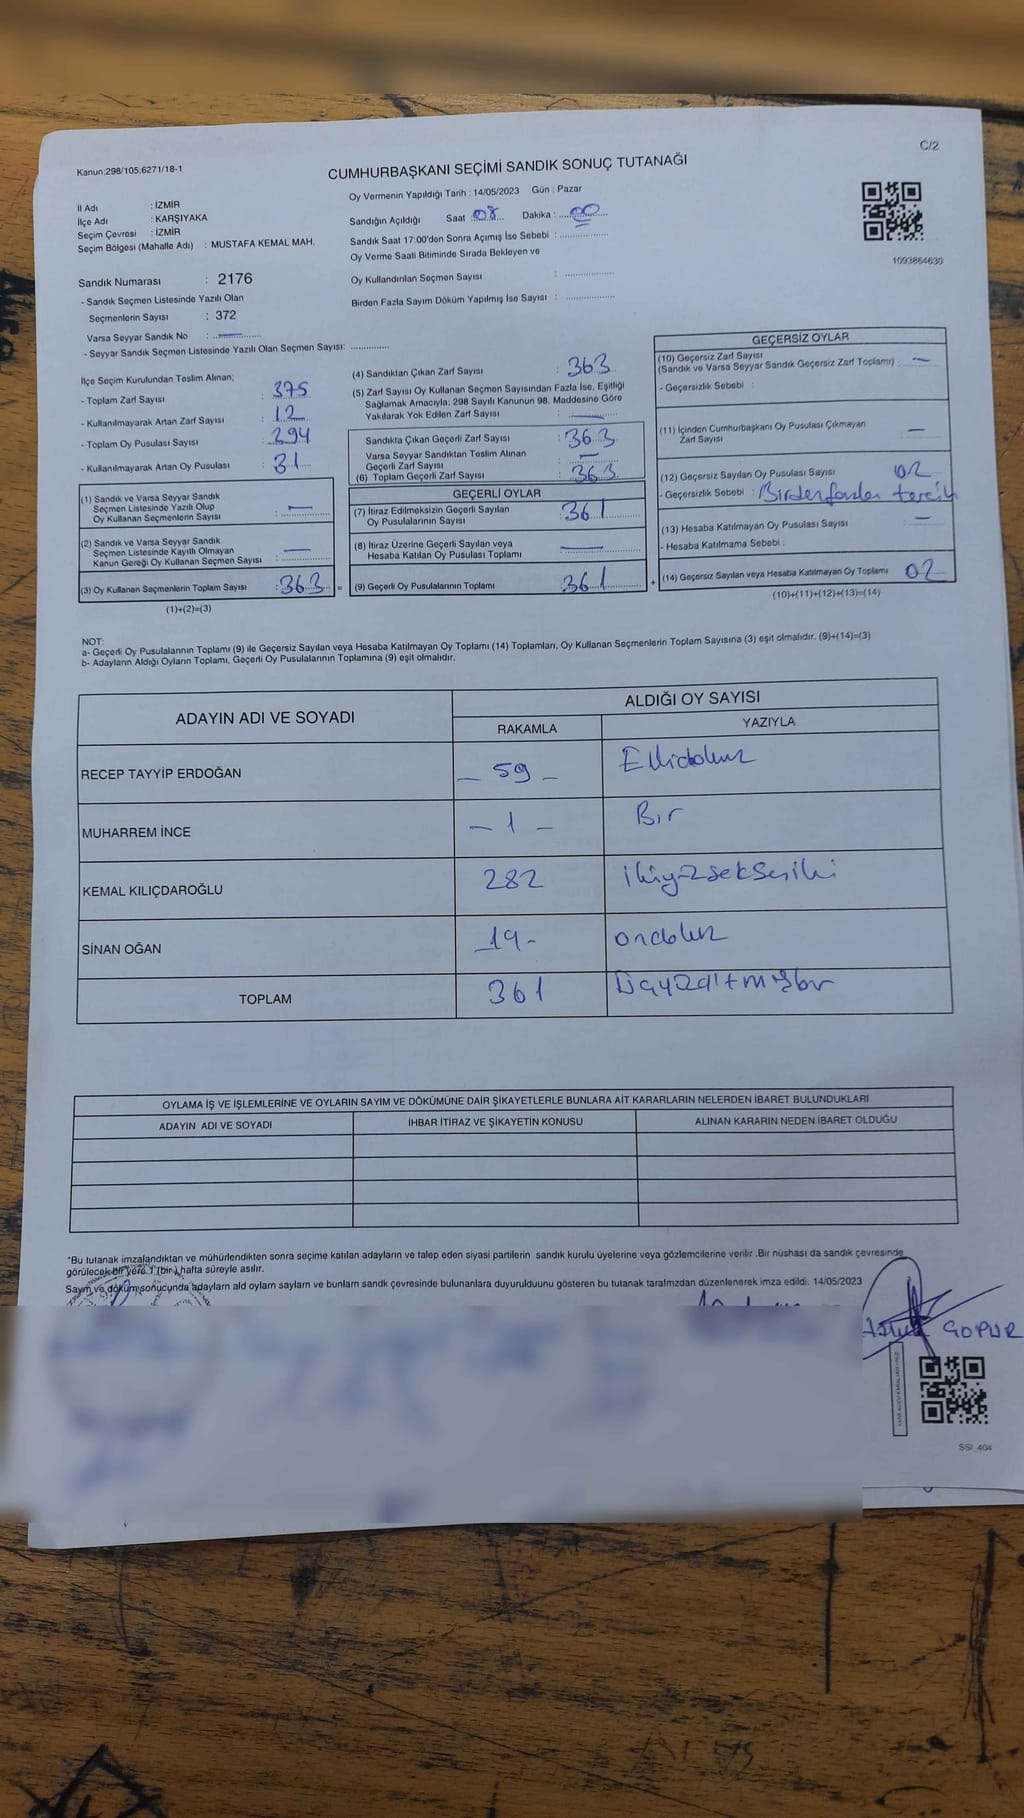 C/2
Kanun;298/105;6271/18-1
CUMHURBAŞKANI SEÇİMİ SANDIK SONUÇ TUTANAĞI
1093864630
İl Adı : İZMİR
İlçe Adı : KARŞIYAKA
Seçim Çevresi : İZMİR
Seçim Bölgesi (Mahalle Adı) : MUSTAFA KEMAL MAH.
Sandık Numarası : 2176
- Sandık Seçmen Listesinde Yazılı Olan
Seçmenlerin Sayısı : 372
Varsa Seyyar Sandık No : —
- Seyyar Sandık Seçmen Listesinde Yazılı Olan Seçmen Sayısı: ..............
Oy Vermenin Yapıldığı Tarih : 14/05/2023 Gün : Pazar
Sandığın Açıldığı Saat 08 Dakika : 00
Sandık Saat 17:00'den Sonra Açımış İse Sebebi : ..............
Oy Verme Saati Bitiminde Sırada Bekleyen ve
Oy Kullandırılan Seçmen Sayısı : ..............
Birden Fazla Sayım Döküm Yapılmış İse Sayısı : ..............
İlçe Seçim Kurulundan Teslim Alınan;
- Toplam Zarf Sayısı : 375
- Kullanılmayarak Artan Zarf Sayısı : 12
- Toplam Oy Pusulası Sayısı : 394
- Kullanılmayarak Artan Oy Pusulası : 31
(1) Sandık ve Varsa Seyyar Sandık
Seçmen Listesinde Yazılı Olup
Oy Kullanan Seçmenlerin Sayısı : —
(2) Sandık ve Varsa Seyyar Sandık
Seçmen Listesinde Kayıtlı Olmayan
Kanun Gereği Oy Kullanan Seçmen Sayısı : —
(3) Oy Kullanan Seçmenlerin Toplam Sayısı : 363 =
(1)+(2)=(3)
(4) Sandıktan Çıkan Zarf Sayısı : 363
(5) Zarf Sayısı Oy Kullanan Seçmen Sayısından Fazla İse, Eşitliği
Sağlamak Amacıyla; 298 Sayılı Kanunun 98. Maddesine Göre
Yakılarak Yok Edilen Zarf Sayısı : —
Sandıkta Çıkan Geçerli Zarf Sayısı : 363
Varsa Seyyar Sandıktan Teslim Alınan
Geçerli Zarf Sayısı : —
(6) Toplam Geçerli Zarf Sayısı : 363
GEÇERLİ OYLAR
(7) İtiraz Edilmeksizin Geçerli Sayılan
Oy Pusulalarının Sayısı : 361
(8) İtiraz Üzerine Geçerli Sayılan veya
Hesaba Katılan Oy Pusulası Toplamı : —
(9) Geçerli Oy Pusulalarının Toplamı : 361 +
GEÇERSİZ OYLAR
(10) Geçersiz Zarf Sayısı
(Sandık ve Varsa Seyyar Sandık Geçersiz Zarf Toplamı) : —
- Geçersizlik Sebebi :
(11) İçinden Cumhurbaşkanı Oy Pusulası Çıkmayan
Zarf Sayısı —
(12) Geçersiz Sayılan Oy Pusulası Sayısı 02
- Geçersizlik Sebebi : Birden fazla tercih
(13) Hesaba Katılmayan Oy Pusulası Sayısı —
- Hesaba Katılmama Sebebi :
(14) Geçersiz Sayılan veya Hesaba Katılmayan Oy Toplamı 02
(10)+(11)+(12)+(13)=(14)
NOT:
a- Geçerli Oy Pusulalarının Toplamı (9) ile Geçersiz Sayılan veya Hesaba Katılmayan Oy Toplamı (14) Toplamları, Oy Kullanan Seçmenlerin Toplam Sayısına (3) eşit olmalıdır. (9)+(14)=(3)
b- Adayların Aldığı Oyların Toplamı, Geçerli Oy Pusulalarının Toplamına (9) eşit olmalıdır.
ADAYIN ADI VE SOYADI ALDIĞI OY SAYISI
RAKAMLA YAZIYLA
RECEP TAYYİP ERDOĞAN — 59 — Ellidokuz
MUHARREM İNCE — 1 — Bir
KEMAL KILIÇDAROĞLU 282 ikiyüzsekseniki
SİNAN OĞAN — 19 - ondokuz
TOPLAM 361 Üçyüzaltmışbir
OYLAMA İŞ VE İŞLEMLERİNE VE OYLARIN SAYIM VE DÖKÜMÜNE DAİR ŞİKAYETLERLE BUNLARA AİT KARARLARIN NELERDEN İBARET BULUNDUKLARI
ADAYIN ADI VE SOYADI İHBAR İTİRAZ VE ŞİKAYETİN KONUSU ALINAN KARARIN NEDEN İBARET OLDUĞU
*Bu tutanak imzalandıktan ve mühürlendikten sonra seçime katılan adayların ve talep eden siyasi partilerin sandık kurulu üyelerine veya gözlemcilerine verilir .Bir nüshası da sandık çevresinde
görülecek bir yere 1 (bir ) hafta süreyle asılır.
Sayım ve döküm sonucunda adayların ald oylarn sayların ve bunların sandk çevresinde bulunanlara duyurulduunu gösteren bu tutanak tarafmzdan düzenlenerek imza edildi. 14/05/2023
SSI_404